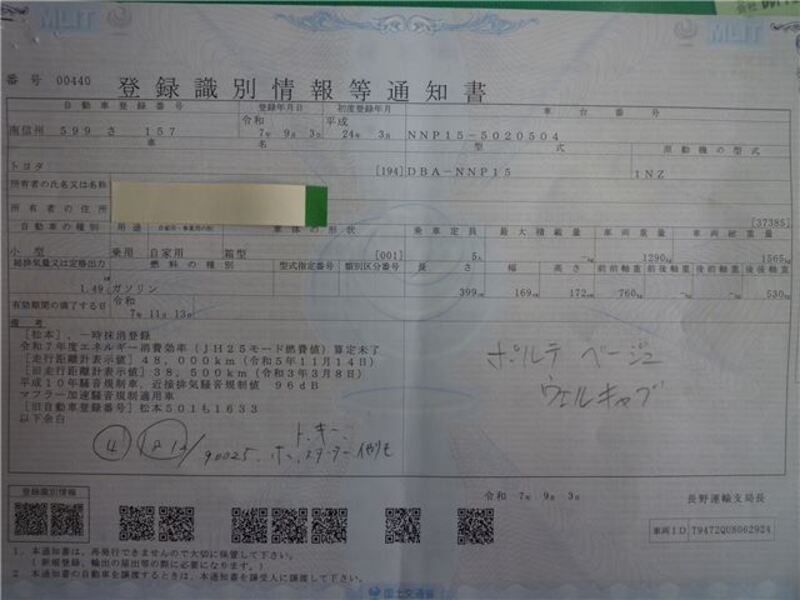 番号 00440
登録識別情報等通知書
自動車登録番号 登録年月日 初度登録年月 車台番号
南信州 599 さ 157 令和 7年 9月 3日 平成 24年 3月 NNP15-5020504
車名 型式 原動機の型式
トヨタ [194] DBA-NNP15 1NZ
所有者の氏名又は名称
所有者の住所
[37385]
自動車の種別 用途 自家用・事業用の別 車体の形状 乗車定員 最大積載量 車両重量 車両総重量
小型 乗用 自家用 箱型 [001] 5人 -kg 1290kg 1565kg
総排気量又は定格出力 燃料の種別 型式指定番号 類別区分番号 長さ 幅 高さ 前前軸重 前後軸重 後前軸重 後後軸重
1.49 ガソリン 399cm 169cm 172cm 760kg -kg -kg 530kg
有効期間の満了する日 令和 7年 11月 13日
備考
[松本], 一時抹消登録
令和7年度エネルギー消費効率(JH25モード燃費値)算定未了
[走行距離計表示値] 48,000km(令和5年11月14日)
[旧走行距離計表示値] 38,500km(令和3年3月8日)
平成10年騒音規制車, 近接排気騒音規制値 96dB
マフラー加速騒音規制適用車
[旧自動車登録番号] 松本501も1633
以下余白
ポルテ ベージュ
ウェルキャブ
④
90025.
令和 7年 9月 3日
長野運輸支局長
登録識別情報
車両ID T9472QU8062924
1. 本通知書は、再発行できませんので大切に保管して下さい。
(新規登録、輸出の届出等の際に必要になります。)
2. 本通知書の自動車を譲渡するときは、本通知書を譲受人に譲渡して下さい。
国土交通省